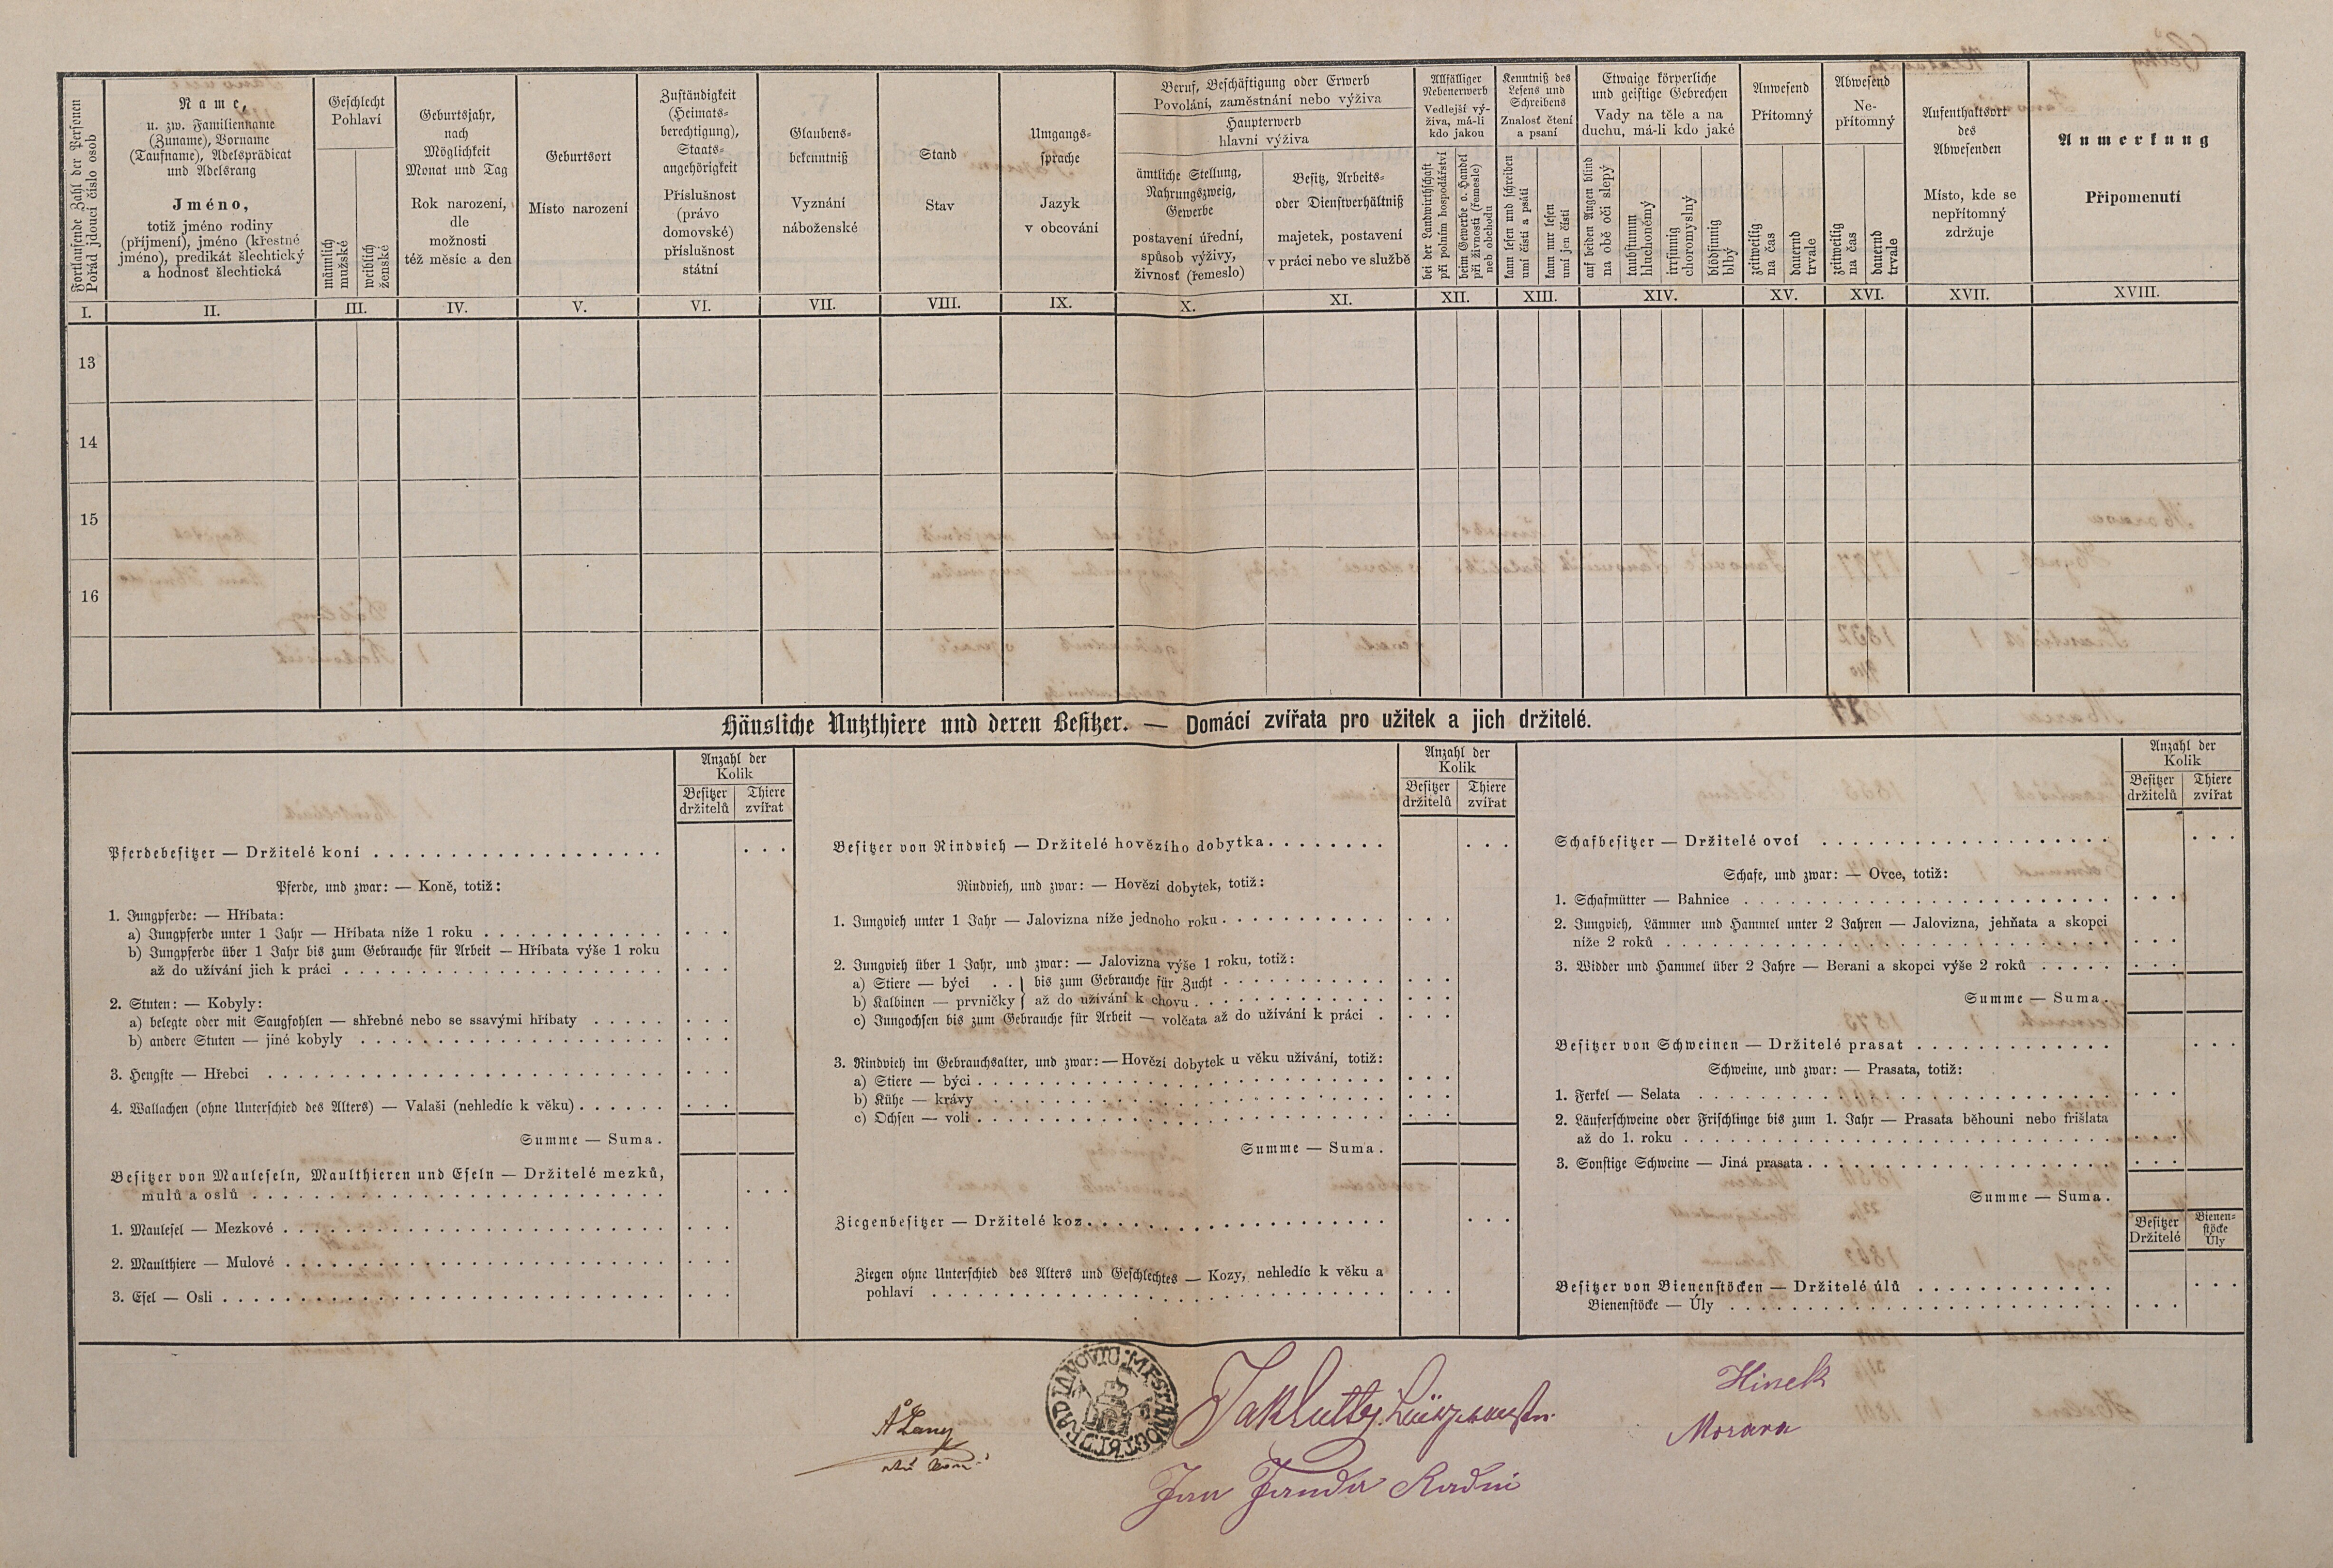 Fortlaufende Zahl der Personen
Pořád jdoucí číslo osob
Name,
u. zw. Familienname
(Zuname), Vorname
(Taufname), Adelsprädicat
und Adelsrang
Jméno,
totiž jméno rodiny
(příjmení), jméno (křestné
jméno), predikát šlechtický
a hodnosť šlechtická
Geschlecht
Pohlaví
männlich
mužské
weiblich
ženské
Geburtsjahr,
nach
Möglichkeit
Monat und Tag
Rok narození,
dle
možnosti
též měsíc a den
Geburtsort
Místo narození
Zuständigkeit
(Heimats-
berechtigung),
Staats-
angehörigkeit
Příslušnost
(právo
domovské)
příslušnost
státní
Glaubens-
bekenntniß
Vyznání
náboženské
Stand
Stav
Umgangs-
sprache
Jazyk
v obcování
Beruf, Beschäftigung oder Erwerb
Povolání, zaměstnání nebo výživa
Haupterwerb
hlavní výživa
ämtliche Stellung,
Nahrungszweig,
Gewerbe
postavení úřední,
spůsob výživy,
živnosť (řemeslo)
Besitz, Arbeits-
oder Dienstverhältniß
majetek, postavení
v práci nebo ve službě
Allfälliger
Nebenerwerb
Vedlejší vý-
živa, má-li
kdo jakou
bei der Landwirthschaft
při polním hospodářství
beim Gewerbe o. Handel
při živnosti (řemesle)
neb obchodu
Kenntniß des
Lesens und
Schreibens
Znalosť čtení
a psaní
kann lesen und schreiben
umí čísti a psáti
kann nur lesen
umí jen čísti
Etwaige körperliche
und geistige Gebrechen
Vady na těle a na
duchu, má-li kdo jaké
auf beiden Augen blind
na obě oči slepý
taubstumm
hluchoněmý
irrsinnig
choromyslný
blödsinnig
blbý
Anwesend
Přítomný
zeitweilig
na čas
dauernd
trvale
Abwesend
Ne-
přítomný
zeitweilig
na čas
dauernd
trvale
Aufenthaltsort
des
Abwesenden
Místo, kde se
nepřítomný
zdržuje
Anmerkung
Připomenutí
I. II. III. IV. V. VI. VII. VIII. IX. X. XI. XII. XIII. XIV. XV. XVI. XVII. XVIII.
13
14
15
16
Häusliche Nutzthiere und deren Besitzer. — Domácí zvířata pro užitek a jich držitelé.
Anzahl der
Kolik
Besitzer
držitelů
Thiere
zvířat
Pferdebesitzer — Držitelé koní
Pferde, und zwar: — Koně, totiž:
1. Jungpferde: — Hříbata:
a) Jungpferde unter 1 Jahr — Hříbata níže 1 roku
b) Jungpferde über 1 Jahr bis zum Gebrauche für Arbeit — Hříbata výše 1 roku
až do užívání jich k práci
2. Stuten: — Kobyly:
a) belegte oder mit Saugfohlen — shřebné nebo se ssavými hříbaty
b) andere Stuten — jiné kobyly
3. Hengste — Hřebci
4. Wallachen (ohne Unterschied des Alters) — Valaši (nehledíc k věku)
Summe — Suma.
Besitzer von Mauleseln, Maulthieren und Eseln — Držitelé mezků,
mulů a oslů
1. Maulesel — Mezkové
2. Maulthiere — Mulové
3. Esel — Osli
Anzahl der
Kolik
Besitzer
držitelů
Thiere
zvířat
Besitzer von Rindvieh — Držitelé hovězího dobytka
Rindvieh, und zwar: — Hovězí dobytek, totiž:
1. Jungvieh unter 1 Jahr — Jalovizna níže jednoho roku
2. Jungvieh über 1 Jahr, und zwar: — Jalovizna výše 1 roku, totiž:
a) Stiere — býci . . } bis zum Gebrauche für Zucht
b) Kalbinen — prvničky } až do užívání k chovu
c) Jungochsen bis zum Gebrauche für Arbeit — volčata až do užívání k práci
3. Rindvieh im Gebrauchsalter, und zwar: — Hovězí dobytek u věku užívání, totiž:
a) Stiere — býci
b) Kühe — krávy
c) Ochsen — voli
Summe — Suma.
Ziegenbesitzer — Držitelé koz
Ziegen ohne Unterschied des Alters und Geschlechtes — Kozy, nehledíc k věku a
pohlaví
Anzahl der
Kolik
Besitzer
držitelů
Thiere
zvířat
Schafbesitzer — Držitelé ovcí
Schafe, und zwar: — Ovce, totiž:
1. Schafmütter — Bahnice
2. Jungvieh, Lämmer und Hammel unter 2 Jahren — Jalovizna, jehňata a skopci
níže 2 roků
3. Widder und Hammel über 2 Jahre — Berani a skopci výše 2 roků
Summe — Suma.
Besitzer von Schweinen — Držitelé prasat
Schweine, und zwar: — Prasata, totiž:
1. Ferkel — Selata
2. Läuferschweine oder Frischlinge bis zum 1. Jahr — Prasata běhouni nebo frišlata
až do 1. roku
3. Sonstige Schweine — Jiná prasata
Summe — Suma.
Besitzer
Držitelé
Bienen-
stöcke
Úly
Besitzer von Bienenstöcken — Držitelé úlů
Bienenstöcke — Úly
Hinek
Morava
Jan Janda Radní